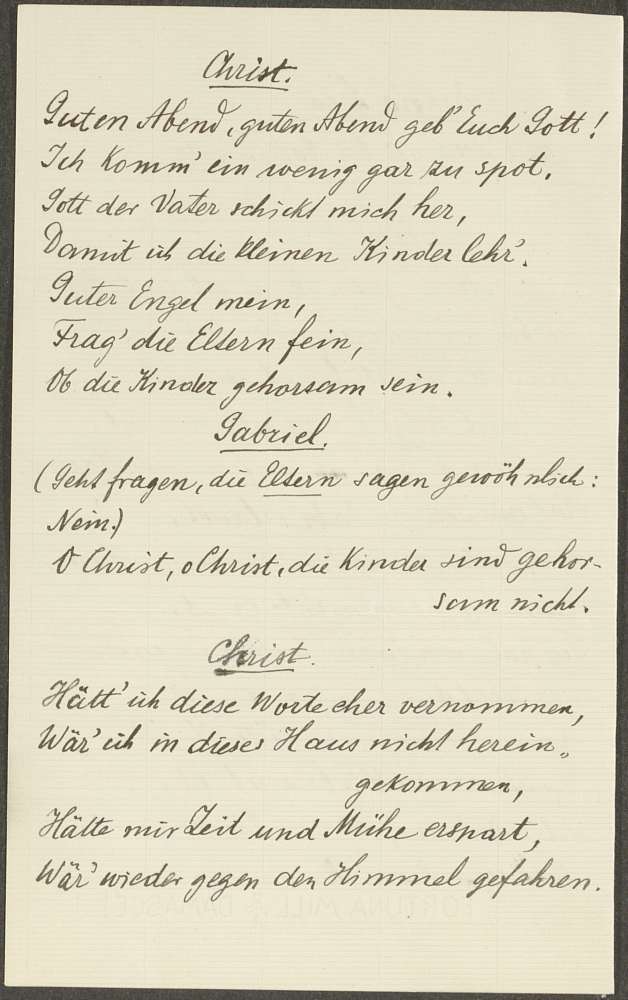 Christ.
Guten Abend, guten Abend geb' Euch Gott!
Ich komm' ein wenig gar zu spot.
Gott der Vater schickt mich her,
Damit ich die kleinen Kinder lehr'.
Guter Engel mein,
Frag' die Eltern fein,
Ob die Kinder gehorsam sein.
Gabriel.
(Geht fragen, die Eltern sagen gewöhnlich:
Nein.)
O Christ, o Christ, die Kinder sind gehor-
sam nicht.
Christ.
Hätt' ich diese Worte eher vernommen,
Wär' ich in dieses Haus nicht herein-
gekommen,
Hätte mir Zeit und Mühe erspart,
Wär' wieder gegen den Himmel gefahren.